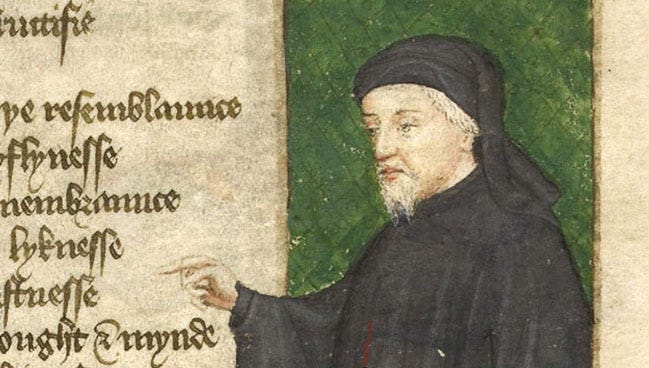 ructifie
ye resemblaunce
yflynesse
membraunce
lyknesse
stnesse
ought & mynde